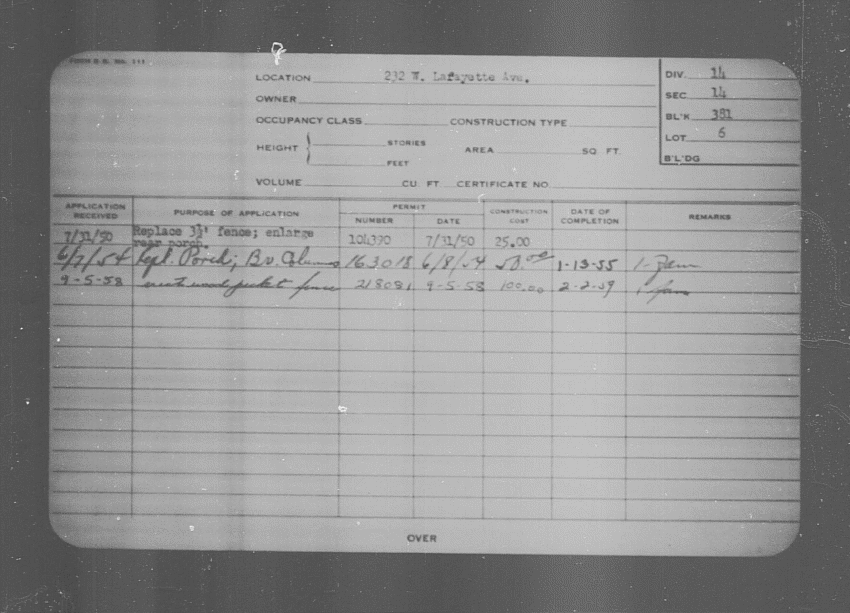 FORM B.B. No. 111
LOCATION 232 W. Lafayette Ave.
OWNER
OCCUPANCY CLASS CONSTRUCTION TYPE
HEIGHT STORIES FEET AREA SQ FT.
VOLUME CU FT CERTIFICATE NO
DIV. 14
SEC 14
BL'K 381
LOT 6
B'L'DG
APPLICATION RECEIVED PURPOSE OF APPLICATION PERMIT NUMBER DATE CONSTRUCTION COST DATE OF COMPLETION REMARKS
7/31/50 Replace 3½' fence; enlarge rear porch. 104390 7/31/50 25.00
6/7/54 Repl. Porch; Bv. Columns 163018 6/8/54 50.00 1-13-55 1-Fam
9-5-58 wood picket fence 218081 9-5-58 100.00 2-2-59 1 fam
OVER